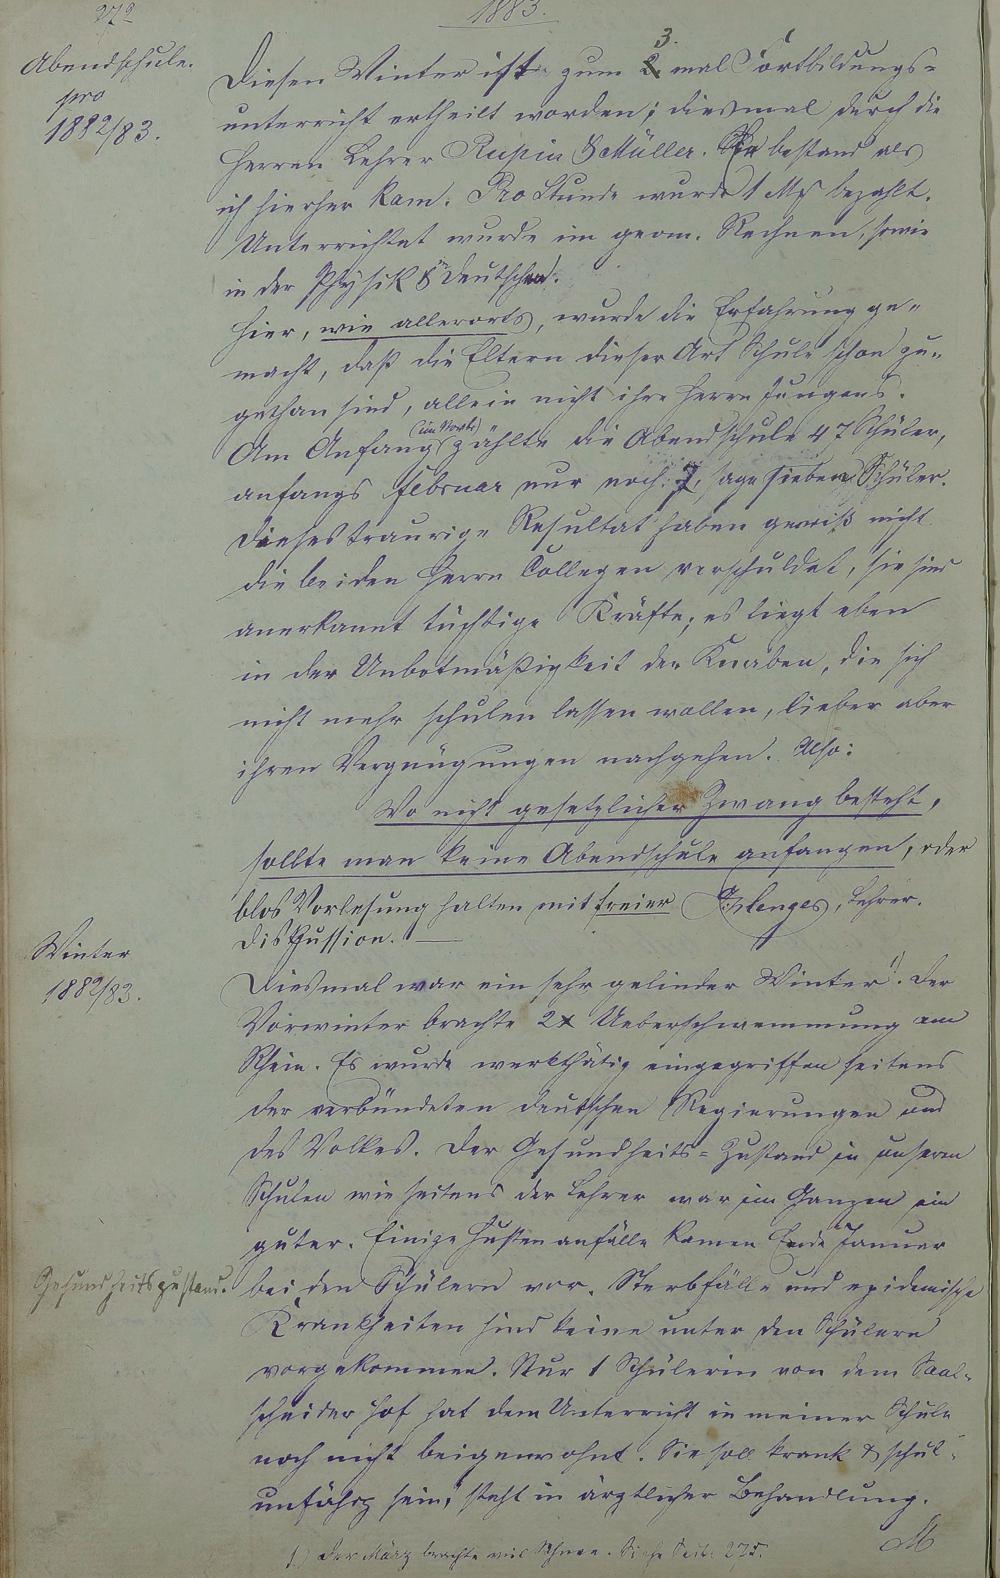 272
1883.
Abendschule.
pro
1882/83.
Diesen Winter ist zum 3. mal Fortbildungs-
unterricht ertheilt worden; diesmal durch die
Herren Lehrer Rupin & Müller. Sie bestand als
ich hierher kam. Pro Stunde wurde 1 Mk bezahlt.
Unterrichtet wurde im geom. Rechnen, sowie
in der Physik & im Deutschen.
Hier, wie allerorts, wurde die Erfahrung ge-
macht, daß die Eltern dieser Art Schule schon zu-
gethan sind, allein nicht ihre Herrn Jungens.
Am Anfang (im Novbr) zählte die Abendschule 47 Schüler,
anfangs Februar nur noch: 7, sage sieben Schüler.
Dieses traurige Resultat haben gewiß nicht
die beiden Herrn Collegen verschuldet, sie sind
anerkannt tüchtige Kräfte; es liegt eben
in der Unbotmäßigkeit der Knaben, die sich
nicht mehr schulen lassen wollen, lieber aber
ihren Vergnügungen nachgehen. Also:
Wo nicht gesetzlicher Zwang besteht,
sollte man keine Abendschule anfangen, oder
blos Vorlesung halten mit freier
Diskussion. — Lehrer.
Winter
1882/83.
Diesmal war ein sehr gelinder Winter 1). Der
Vorwinter brachte 2x Ueberschwemmung am
Rhein. Es wurde werkthätig eingegriffen seitens
der verbündeten deutschen Regierungen und
des Volkes. Der Gesundheits-Zustand in unseren
Schulen wie seitens der Lehrer war im Ganzen ein
guter. Einige Hustenanfälle kamen Ende Januar
Gesundheitszustand.
bei den Schülern vor. Sterbfälle und epidemische
Krankheiten sind keine unter den Schülern
vorgekommen. Nur 1 Schülerin von dem Saal-
scheider Hof hat dem Unterricht in meiner Schule
noch nicht beigewohnt. Sie soll krank & schul-
unfähig sein, steht in ärztlicher Behandlung.
M
1.) Der März brachte viel Schnee. Siehe Seite 275.